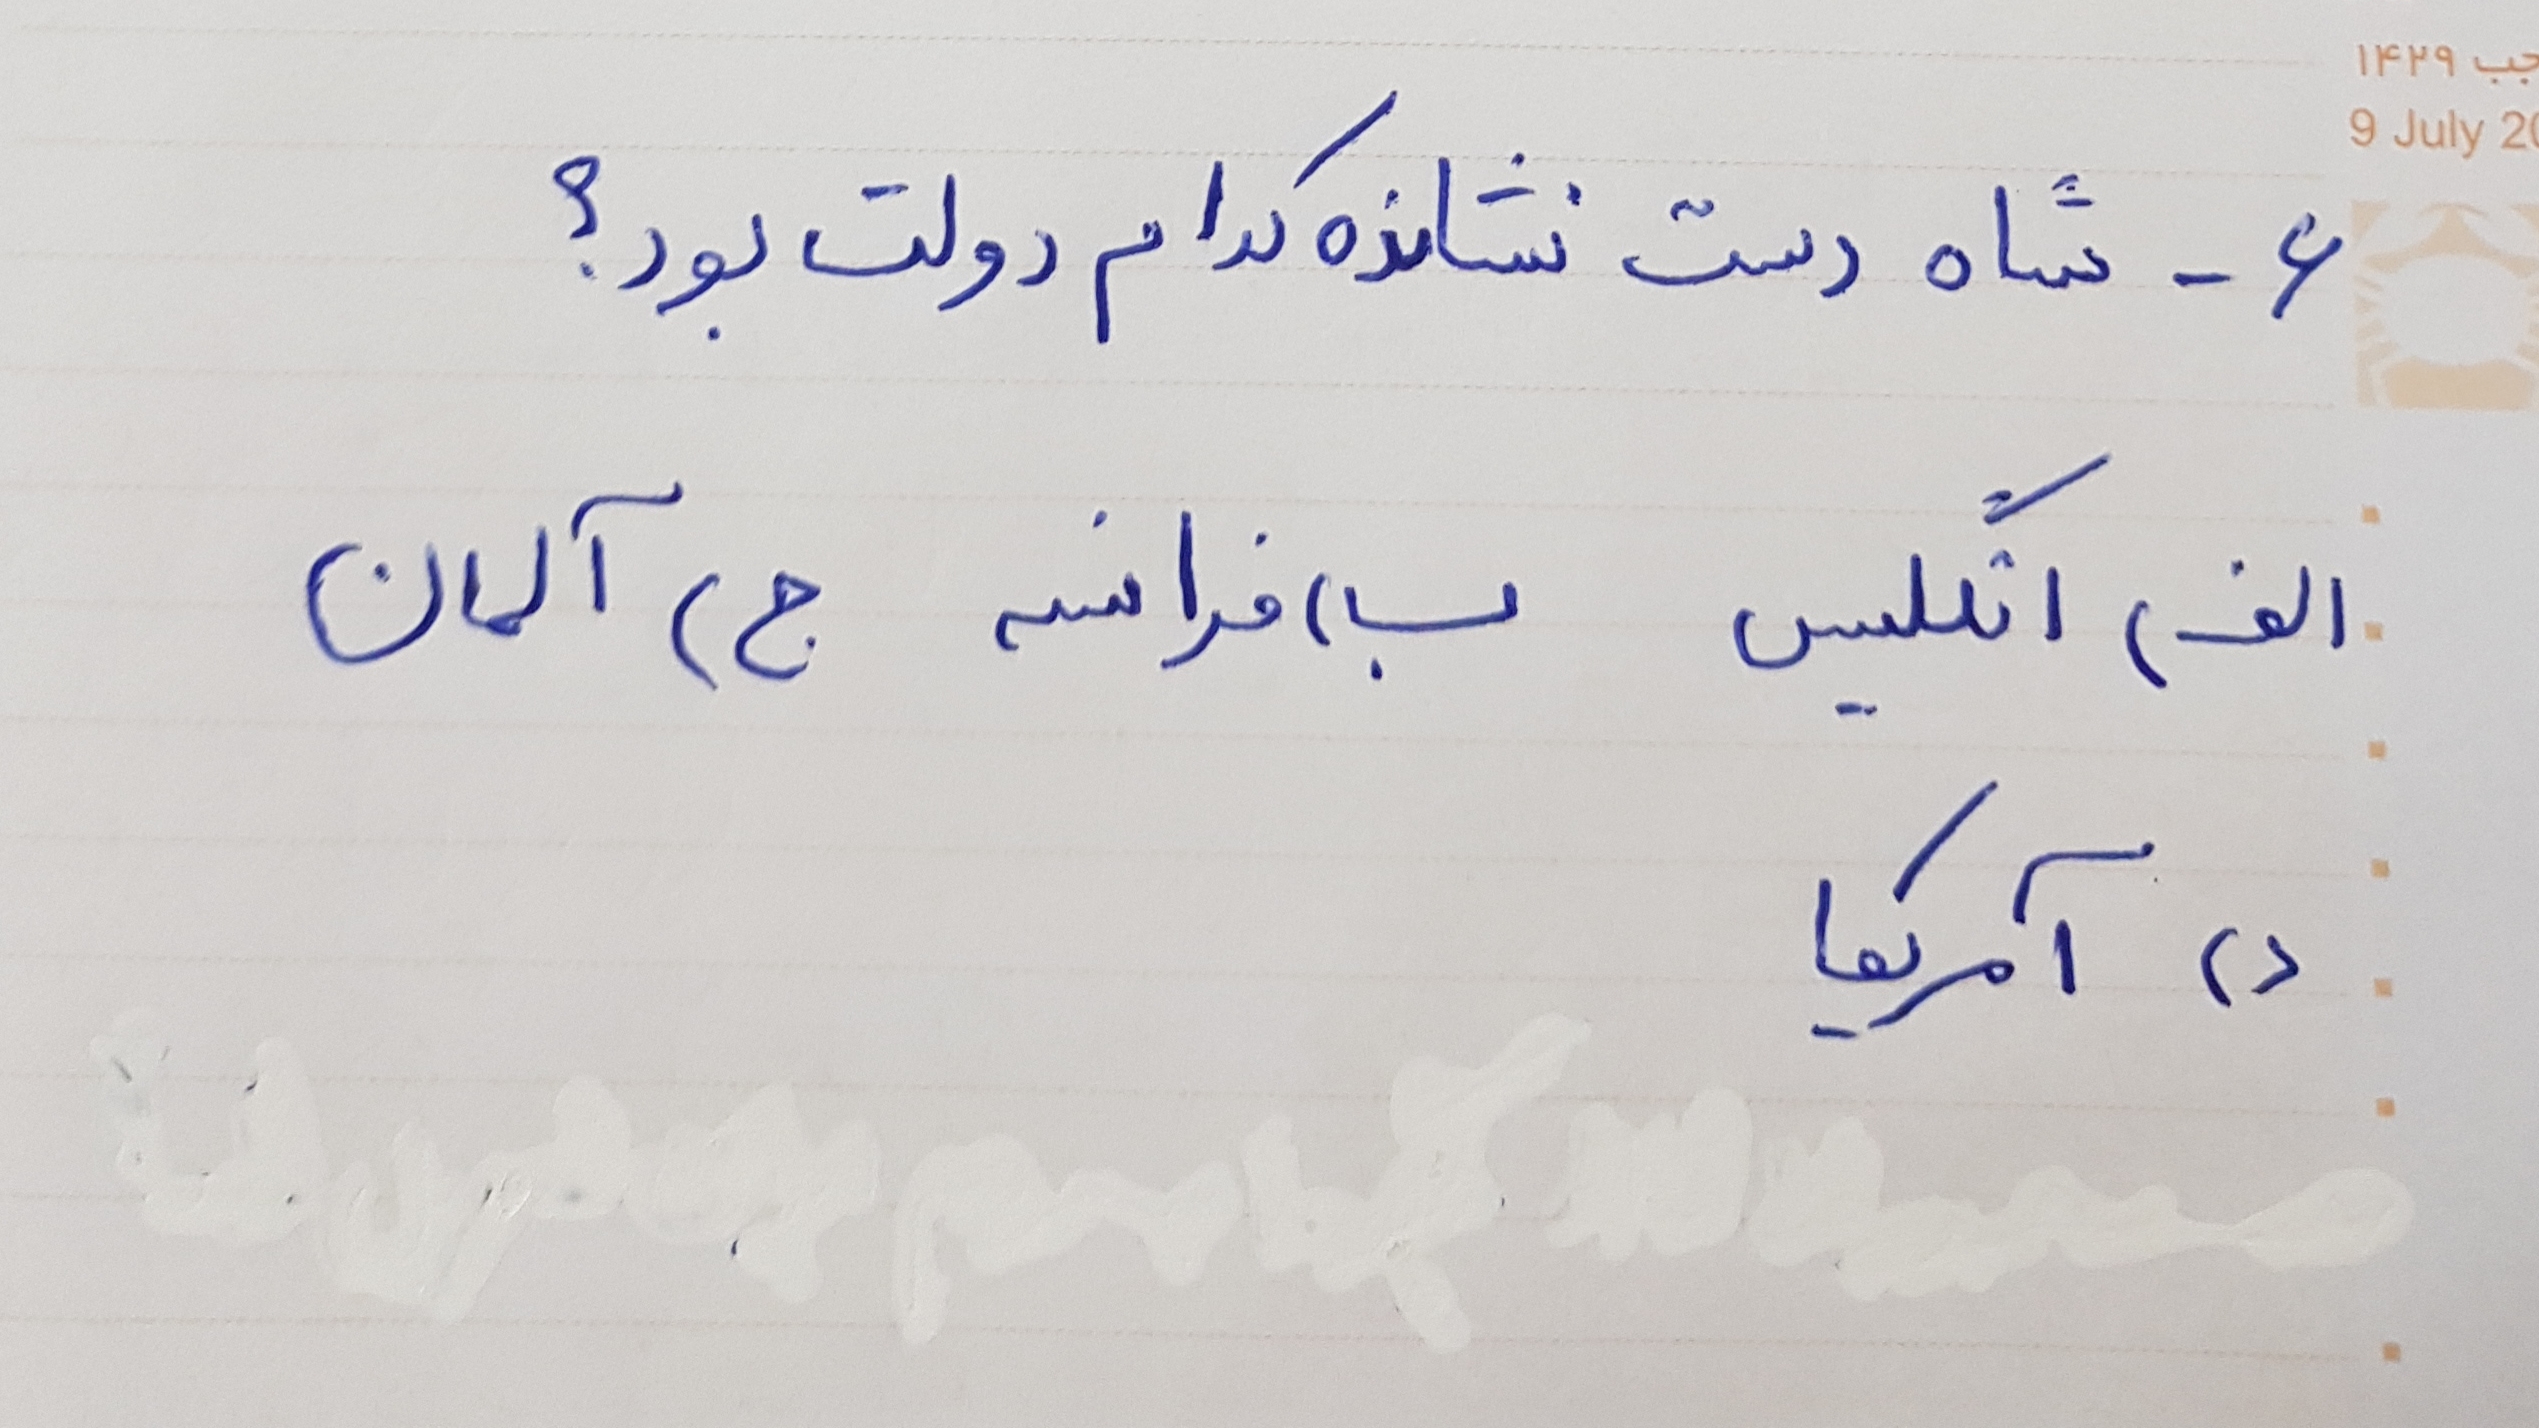 جب ۱۴۲۹
9 July 20
۶ - شاه دست نشانده کدام دولت بود؟
الف) انگلیس ب) فرانسه ج) آلمان
د) آمریکا